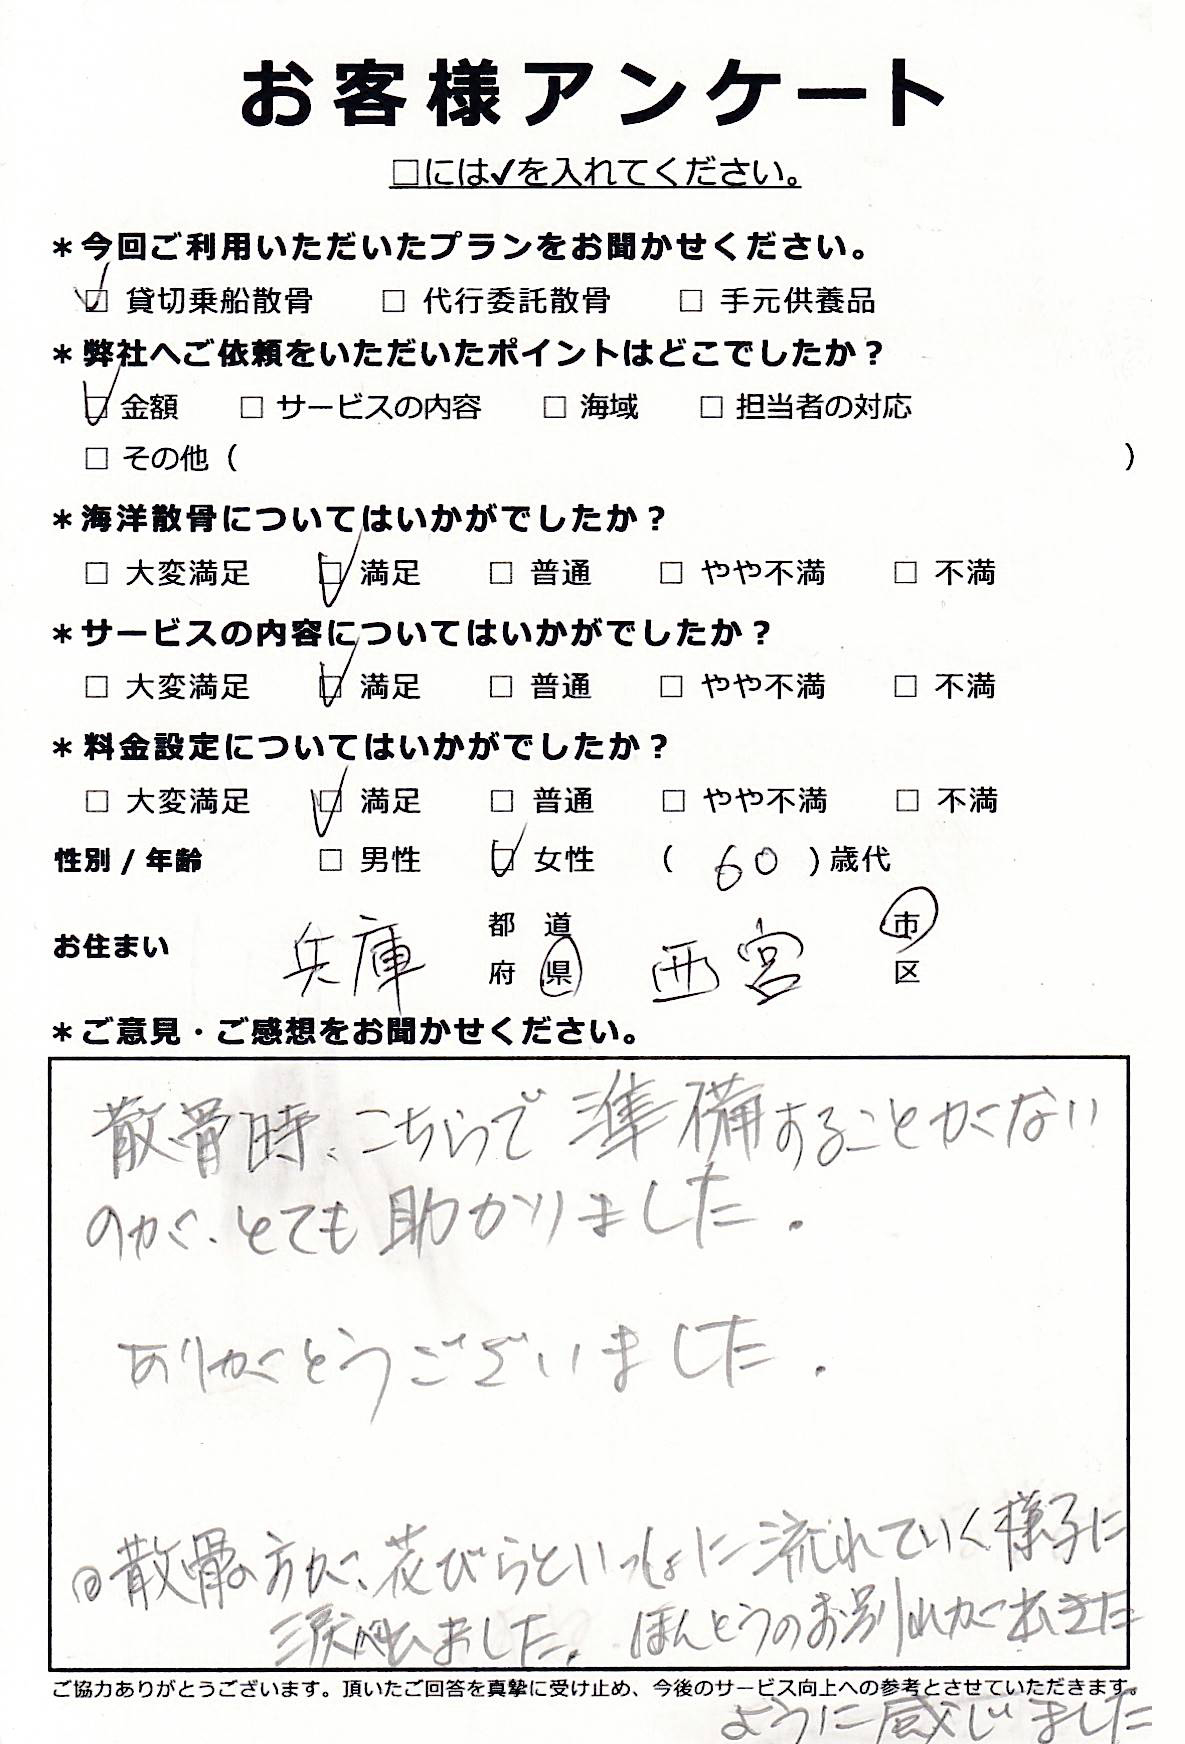 お客様アンケート
□には✓を入れてください。
＊今回ご利用いただいたプランをお聞かせください。
☑ 貸切乗船散骨 □ 代行委託散骨 □ 手元供養品
＊弊社へご依頼をいただいたポイントはどこでしたか？
☑ 金額 □ サービスの内容 □ 海域 □ 担当者の対応
□ その他（ ）
＊海洋散骨についてはいかがでしたか？
□ 大変満足 ☑ 満足 □ 普通 □ やや不満 □ 不満
＊サービスの内容についてはいかがでしたか？
□ 大変満足 ☑ 満足 □ 普通 □ やや不満 □ 不満
＊料金設定についてはいかがでしたか？
□ 大変満足 ☑ 満足 □ 普通 □ やや不満 □ 不満
性別 / 年齢 □ 男性 ☑ 女性 （ 60 ）歳代
都 道 市
お住まい 兵庫 府 県 西宮 区
＊ご意見・ご感想をお聞かせください。
散骨時、こちらで準備することがない
のが、とても助かりました。
ありがとうございました。
◎散骨の方が、花びらといっしょに流れていく様子に
涙しました。ほんとうのお別れができた
ご協力ありがとうございます。頂いたご回答を真摯に受け止め、今後のサービス向上への参考とさせていただきます。
ように感じました